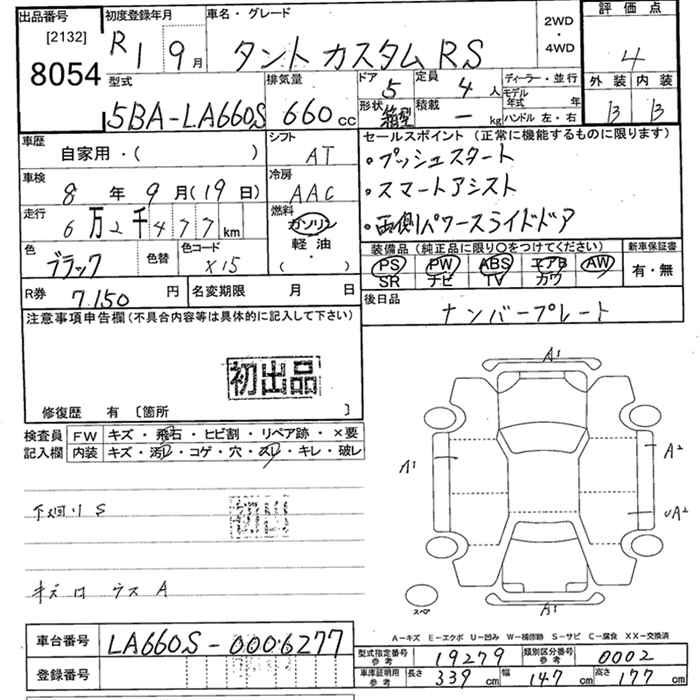 出品番号 初度登録年月 車名・グレード 評価点
[2132] R1 9月 タント カスタム RS 2WD・4WD 4
8054
型式 排気量 ドア 5 定員 4人 ディーラー・並行 外装 内装
5BA-LA660S 660cc 形状 箱型 積載 ー kg モデル年式 年 ハンドル 左・右 B B
車歴 シフト セールスポイント (正常に機能するものに限ります)
自家用・( ) AT ・プッシュスタート
車検 冷房 ・スマートアシスト
8年9月(19日) AAC
走行 燃料 ・両側パワースライドドア
6万2千477km ガソリン
軽油・( )
色 色替 色コード 装備品 (純正品に限り○をつけてください) 新車保証書
ブラック X15 PS PW ABS エアB AW 有・無
SR ナビ TV カワ
R券 7.150円 名変期限 月 日 後日品
ナンバープレート
注意事項申告欄(不具合内容等は具体的に記入して下さい)
初出品
修復歴 有 〔箇所 〕
検査員 FW キズ・飛石・ヒビ割・リペア跡・×要
記入欄 内装 キズ・汚レ・コゲ・穴・スレ・キレ・破レ
下廻り S
初出
キズ ウス A
A1
A1
A2
UA2
スペア
A1
A-キズ E-エクボ U-凹み W-補修跡 S-サビ C-腐食 XX-交換済
車台番号 LA660S-0006277
登録番号
型式指定番号 参考 19279 類別区分番号 参考 0002
車庫証明用 参考 長さ 339cm 幅 147cm 高さ 177cm